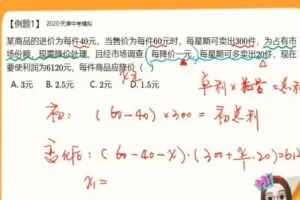 【例题1】 2020天津中考模拟
某商品的进价为每件40元,当售价为每件60元时,每星期可卖出300件,为占有市
场份额,现需降价处理,且经市场调查:每降价一元,每星期可多卖出20件,现在
要使利润为6120元,每件商品应降价( )
A. 3元 B. 2.5元 C. 2元 D. 1.5元
x元
单利×数量=总利
初:(60-40)×300=初总利
变化后:(60-40-x)·(300+x/1·20)=612
x₁=